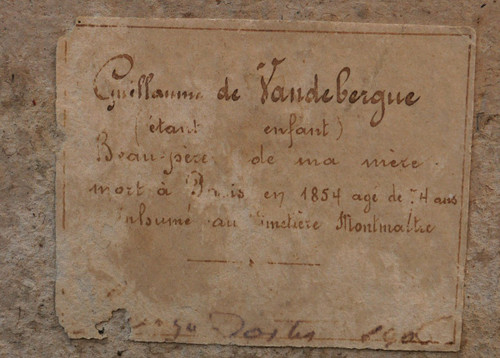 Guillaume de Vandebergue
(étant enfant)
Beau-père de ma mère.
mort à Paris en 1854 agé de 74 ans
inhumé au Cimetière Montmaltre